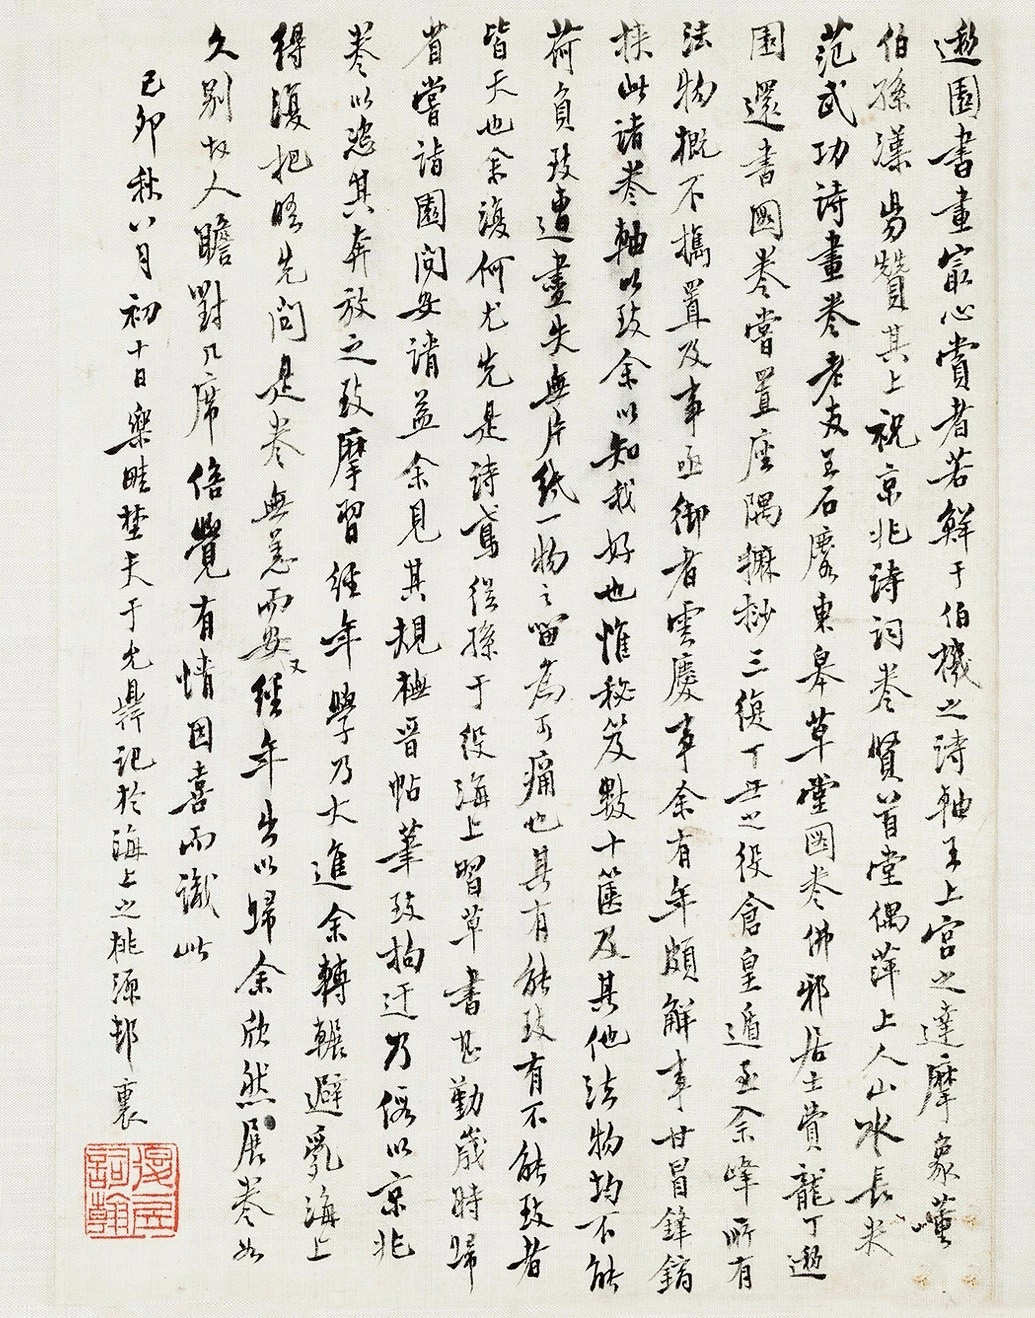 遯園書畫最心賞者若鮮于伯機之詩軸王上宮之達摩象董
伯孫漢易贊其上祝京兆詩詞卷賢首堂偶萍上人山水長卷
范武功詩畫卷老友王石廎東皋草堂圖卷佛邪居士賞龍丁遯
園還書圖卷嘗置座隅摩抄三復丁丑之役倉皇遁至余峰所有
法物概不攜置及事亟御者雲慶事余有年頗解事甘冒鋒鏑
挾此諸卷軸以致余以知我好也惟秘笈數十篋及其他法物均不能
荷負致遭盡失無片紙一物之留為可痛也其有能致有不能致者
皆天也余復何尤先是詩鳶從孫于役海上習草書甚勤歲時歸
省嘗詣園問安請益余見其規橅晉帖筆致拘迂乃假以京兆
卷以恣其奔放之致摩習經年學乃大進余轉輾避亂海上
得復把晤先問是卷無恙而安又經年出以歸余欣然展卷如
久別故人瞻對几席倍覺有情因喜而識此
己卯秋八月初十日樂畦埜夫于允鼎記於海上之桃源邨裏